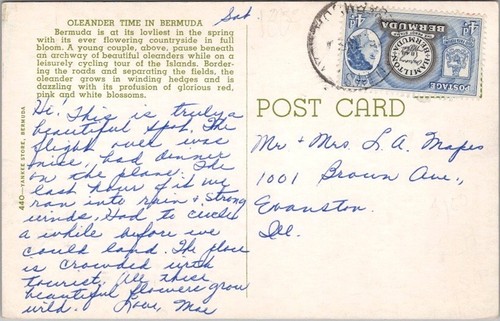 OLEANDER TIME IN BERMUDA
Bermuda is at its lovliest in the spring
with its ever flowering countryside in full
bloom. A young couple, above, pause beneath
an archway of beautiful oleanders while on a
leisurely cycling tour of the Islands. Border-
ing the roads and separating the fields, the
oleander grows in winding hedges and is
dazzling with its profusion of glorious red,
pink and white blossoms.
Sat
Hi! This is truly a
beautiful spot. The
flight over was
nice, had dinner
on the plane. The
last hour of it we
ran into rain & strong
winds. Had to circle
a while before we
could land. The place
is crowded with
tourist. All these
beautiful flowers grow
wild. Love, Mae
440—YANKEE STORE, BERMUDA
POST CARD
Mr & Mrs. L. A. Mapes
1001 Brown Ave.,
Evanston
Ill.
POSTAGE
BERMUDA
HAMILTON
4d
4d